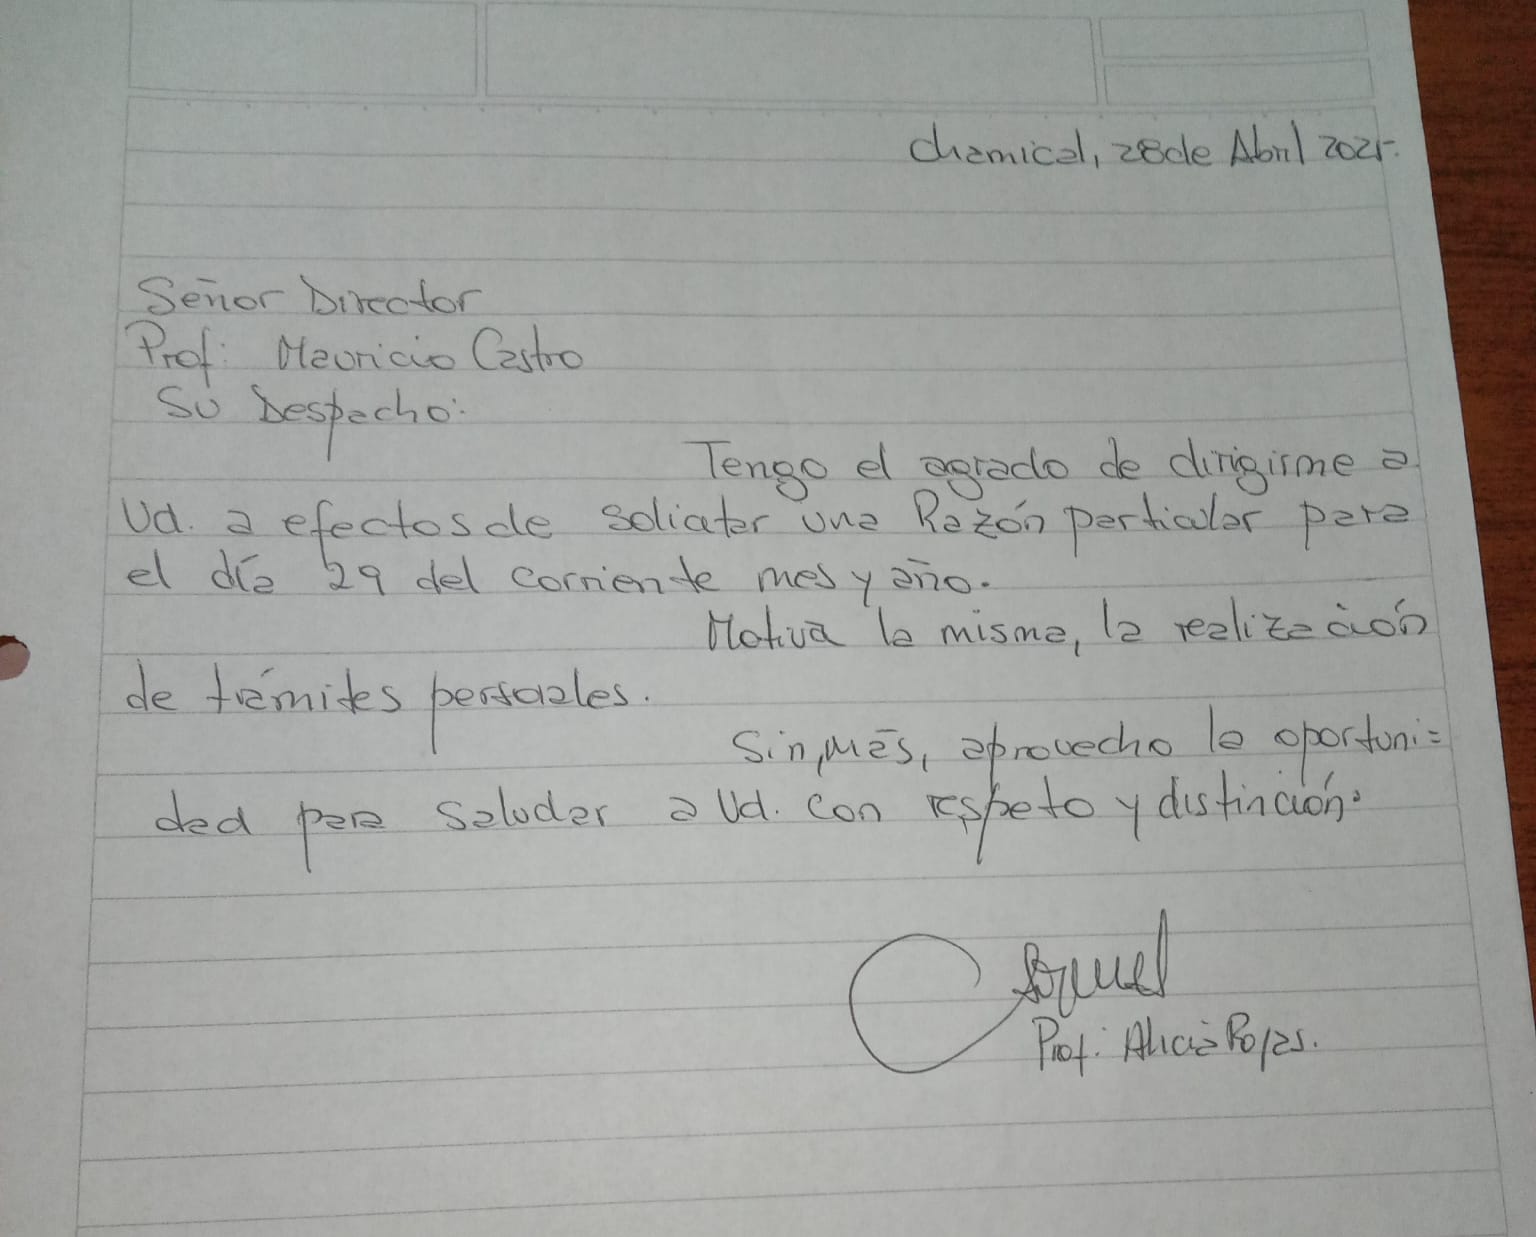 Chamical, 28 de Abril 2025.
Señor Director
Prof: Mauricio Castro
Su Despacho:
Tengo el agrado de dirigirme a
Ud. a efectos de solicitar una Razón particular para
el día 29 del corriente mes y año.
Motiva la misma, la realización
de trámites personales.
Sin más, aprovecho la oportuni=
dad para saludar a Ud. con respeto y distinción.
Prof: Alicia Rojas.